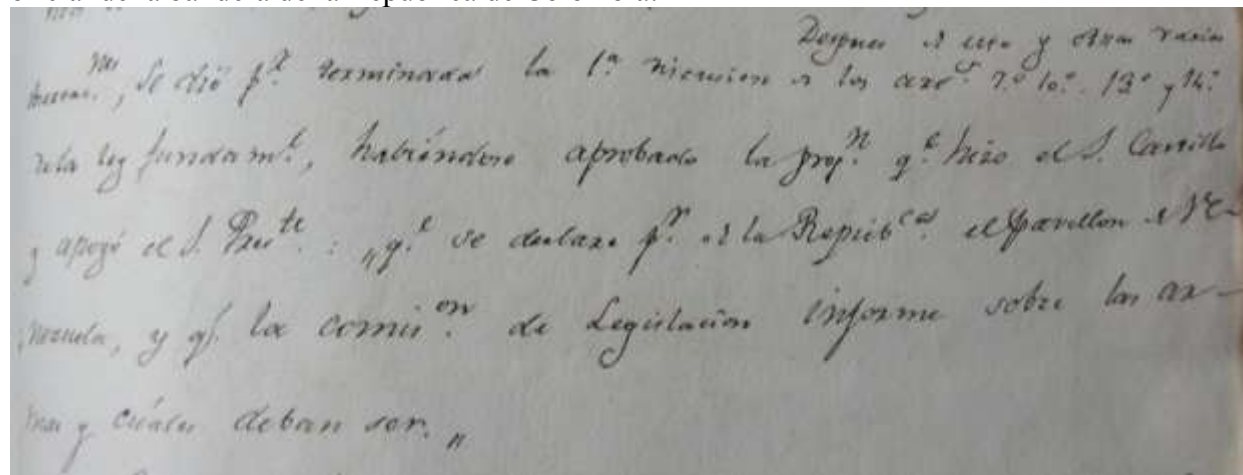 Despues de esto y otras varias
mas, se dió p.r terminada la 1.a discusion de los arts. 7.o 10.o 13.o y 14.o
de la ley fundam.l, habiéndose aprobado la prop.n q.e hizo el S. Carrillo
y apoyó el S. Preste.: „q.e se declare p.r de la Repúb.ca el pavellon de Ve-
nezuela, y q.e la comis.on de Legislacion informe sobre las ar-
mas y cuáles deban ser.„